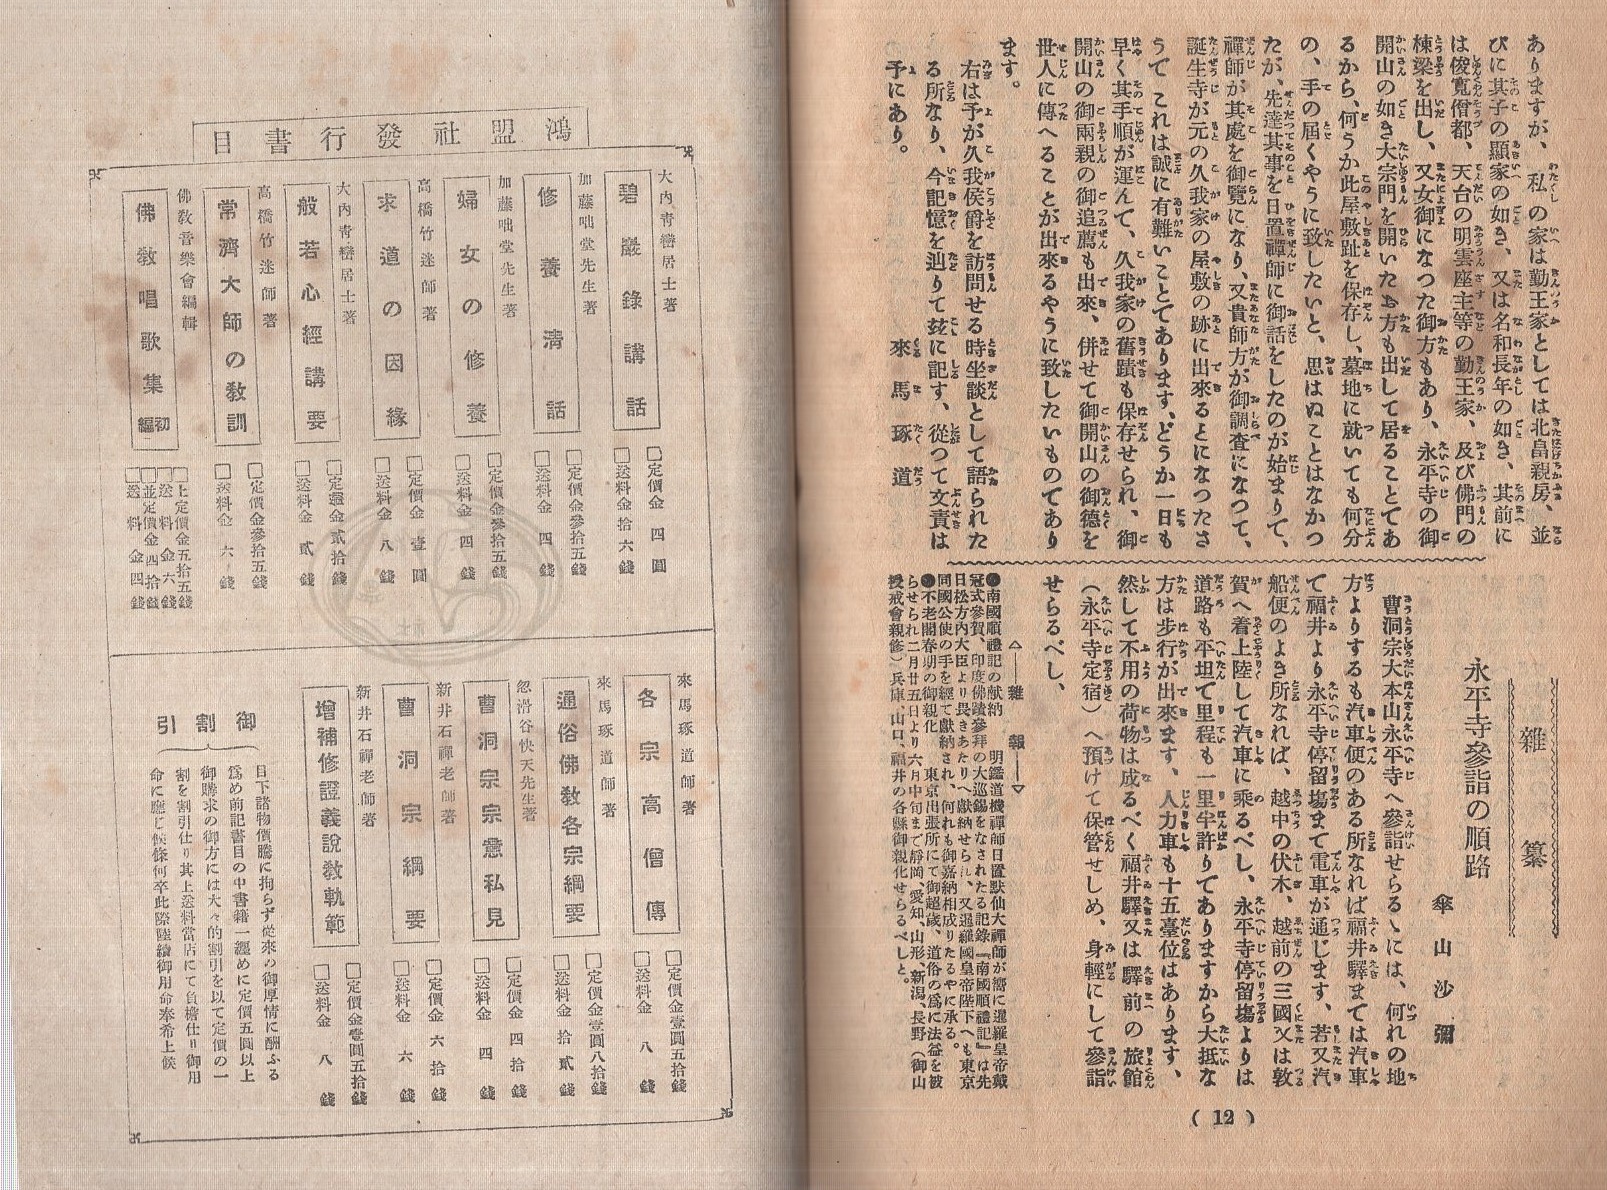 ありますが、私の家は勤王家としては北畠親房、並
びに其子の顯家の如き、又は名和長年の如き、其前に
は俊寛僧都、天台の明雲座主等の勤王家、及び佛門の
棟梁を出し、又女御になつた御方もあり、永平寺の御
開山の如き大宗門を開いたお方も出して居ることであ
るから、何うか此屋敷趾を保存し、墓地に就いても何分
の、手の屆くやうに致したいと、思はぬことはなかつ
たが、先達其事を日置禪師に御話をしたのが始まりて、
禪師が其處を御覽になり、又貴師方が御調査になつて、
誕生寺が元の久我家の屋敷の跡に出來るとになつたさ
うで これは誠に有難いことであります、どうか一日も
早く其手順が運んで、久我家の舊蹟も保存せられ、御
開山の御兩親の御追薦も出來、併せて御開山の御德を
世人に傳へることが出來るやうに致したいものであり
ます。
右は予が久我侯爵を訪問せる時坐談として語られた
る所なり、今記憶を辿りて玆に記す、從つて文責は
予にあり。
來馬琢道
雜纂
永平寺參詣の順路
傘山沙彌
曹洞宗大本山永平寺へ參詣せらるゝには、何れの地
方よりするも汽車便のある所なれば福井驛までは汽車
て福井より永平寺停留塲まで電車が通じます、若又汽
船便のよき所なれば、越中の伏木、越前の三國又は敦
賀へ着上陸して汽車に乘るべし、永平寺停留塲よりは
道路も平坦て里程も一里半許りてありますから大抵な
方は步行が出來ます、人力車も十五臺位はあります、
然して不用の荷物は成るべく福井驛又は驛前の旅館
(永平寺定宿)へ預けて保管せしめ、身輕にして參詣
せらるべし、
△──雜報──▽
●南國順禮記の献納 明鑑道機禪師日置默仙大禪師が嚮に暹羅皇帝戴
冠式參賀、印度佛蹟參拜の大巡錫をなされたる記錄『南國順禮記』は先
日松方內大臣より畏きあたりへ献納せられ、又暹羅國皇帝陛下へも東京
同國公使の手を經て献納され、何れも御嘉納相成りたるやに承る。
●不老閣春期の御親化 東京出張所にて御超歲、道俗の爲に法益を被
らせられ二月廿五日より六月中旬まで靜岡、愛知、山形、新潟、長野(御山
授戒會親修)兵庫、山口、福井の各縣御親化せらるべしと。
(12)
鴻盟社發行書目
大內靑巒居士著
碧巖錄講話
□定價金四圓
□送料金拾六錢
加藤咄堂先生著
修養淸話
□定價金參拾五錢
□送料金四錢
加藤咄堂先生著
婦女の修養
□定價金參拾五錢
□送料金四錢
高橋竹迷師著
求道の因緣
□定價金壹圓
□送料金八錢
大內靑巒居士著
般若心經講要
□定價金貳拾錢
□送料金貳錢
高橋竹迷師著
常濟大師の敎訓
□定價金參拾五錢
□送料金六錢
佛敎音樂會編輯
佛敎唱歌集初編
□上定價金五拾五錢
□送料金六錢
□並定價金四拾錢
□送料金四錢
來馬琢道師著
各宗高僧傳
□定價金壹圓五拾錢
□送料金八錢
來馬琢道師著
通俗佛敎各宗綱要
□定價金壹圓八拾錢
□送料金拾貳錢
忽滑谷快天先生著
曹洞宗宗意私見
□定價金四拾錢
□送料金四錢
新井石禪老師著
曹洞宗綱要
□定價金六拾錢
□送料金六錢
新井石禪老師著
增補修證義說敎軌範
□定價金壹圓五拾錢
□送料金八錢
御割引
目下諸物價騰に拘らず從來の御厚情に酬ふる
爲め前記書目の中書籍一纒めに定價五圓以上
御購求の御方には大々的割引を以て定價の一
割を割引仕り其上送料當店にて負擔仕り御用
命に應じ候條何卒此際陸續御用命奉希上候